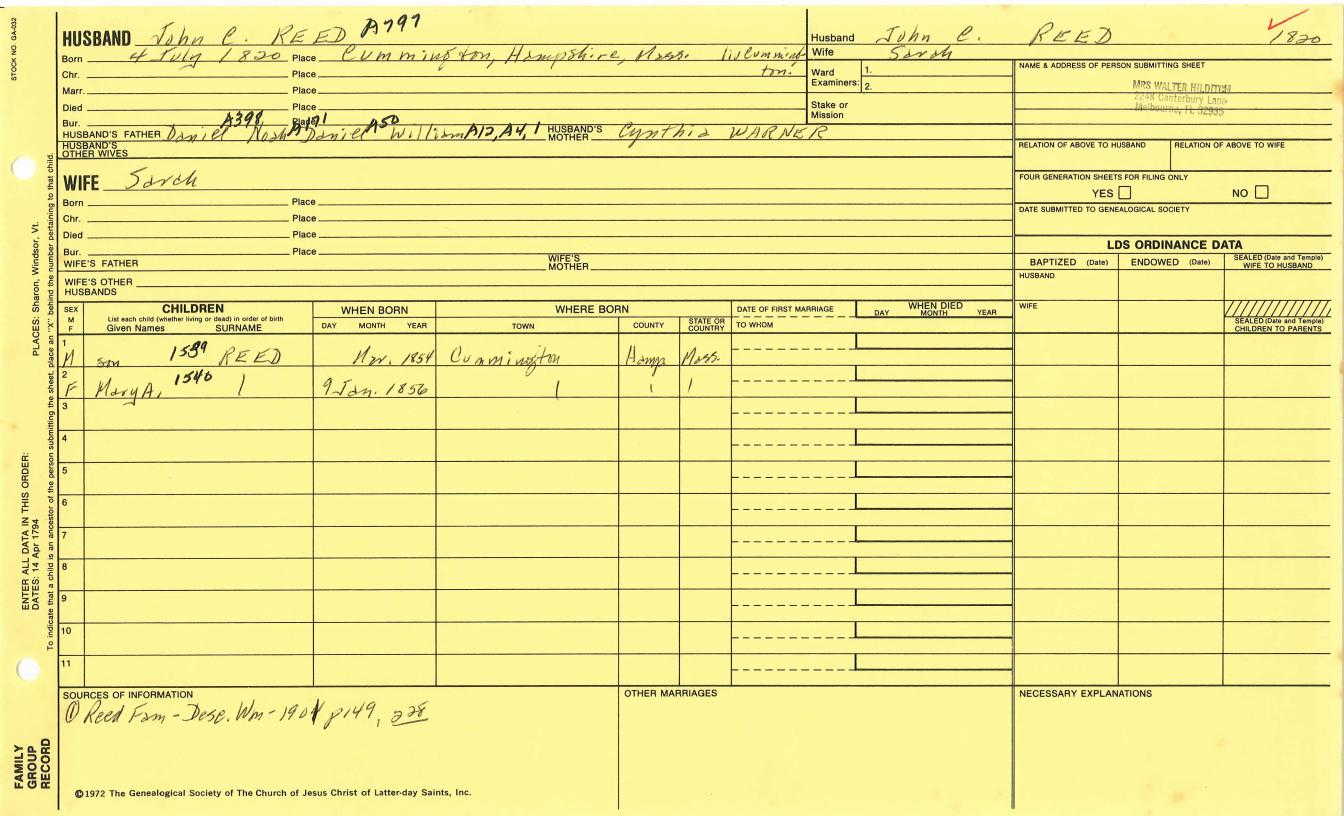 STOCK NO. GA-032
HUSBAND John C. REED A797
Born 4 July 1820 Place Cummington, Hampshire, Mass.
Chr. Place
Marr. Place
Died Place
Bur. Place
HUSBAND'S FATHER Daniel A398, Noah A191 Daniel A50 William A12, A4, 1 HUSBAND'S MOTHER Cynthia WARNER
HUSBAND'S OTHER WIVES
WIFE Sarah
Born Place
Chr. Place
Died Place
Bur. Place
WIFE'S FATHER WIFE'S MOTHER
WIFE'S OTHER HUSBANDS
Husband John C. REED 1820
Wife Sarah
Ward Examiners: 1.
2.
Stake or Mission
NAME & ADDRESS OF PERSON SUBMITTING SHEET
MRS WALTER HILDITCH
2248 Canterbury Lane
Melbourne, FL 32935
RELATION OF ABOVE TO HUSBAND RELATION OF ABOVE TO WIFE
FOUR GENERATION SHEETS FOR FILING ONLY
YES NO
DATE SUBMITTED TO GENEALOGICAL SOCIETY
LDS ORDINANCE DATA
BAPTIZED (Date) ENDOWED (Date) SEALED (Date and Temple) WIFE TO HUSBAND
HUSBAND
WIFE
SEALED (Date and Temple) CHILDREN TO PARENTS
SEX M F CHILDREN WHEN BORN WHERE BORN DATE OF FIRST MARRIAGE WHEN DIED
List each child (whether living or dead) in order of birth
Given Names SURNAME DAY MONTH YEAR TOWN COUNTY STATE OR COUNTRY TO WHOM DAY MONTH YEAR
1 M son 1539 REED Mar. 1854 Cummington Hamp Mass.
2 F Mary A. 1540 9 Jan. 1856
3
4
5
6
7
8
9
10
11
SOURCES OF INFORMATION
① Reed Fam - Desc. Wm - 1901 p149, 228
OTHER MARRIAGES
NECESSARY EXPLANATIONS
©1972 The Genealogical Society of The Church of Jesus Christ of Latter-day Saints, Inc.
FAMILY GROUP RECORD
ENTER ALL DATA IN THIS ORDER:
DATES: 14 Apr 1794 PLACES: Sharon, Windsor, Vt.
To indicate that a child is an ancestor of the person submitting the sheet, place an "X" behind the number pertaining to that child.